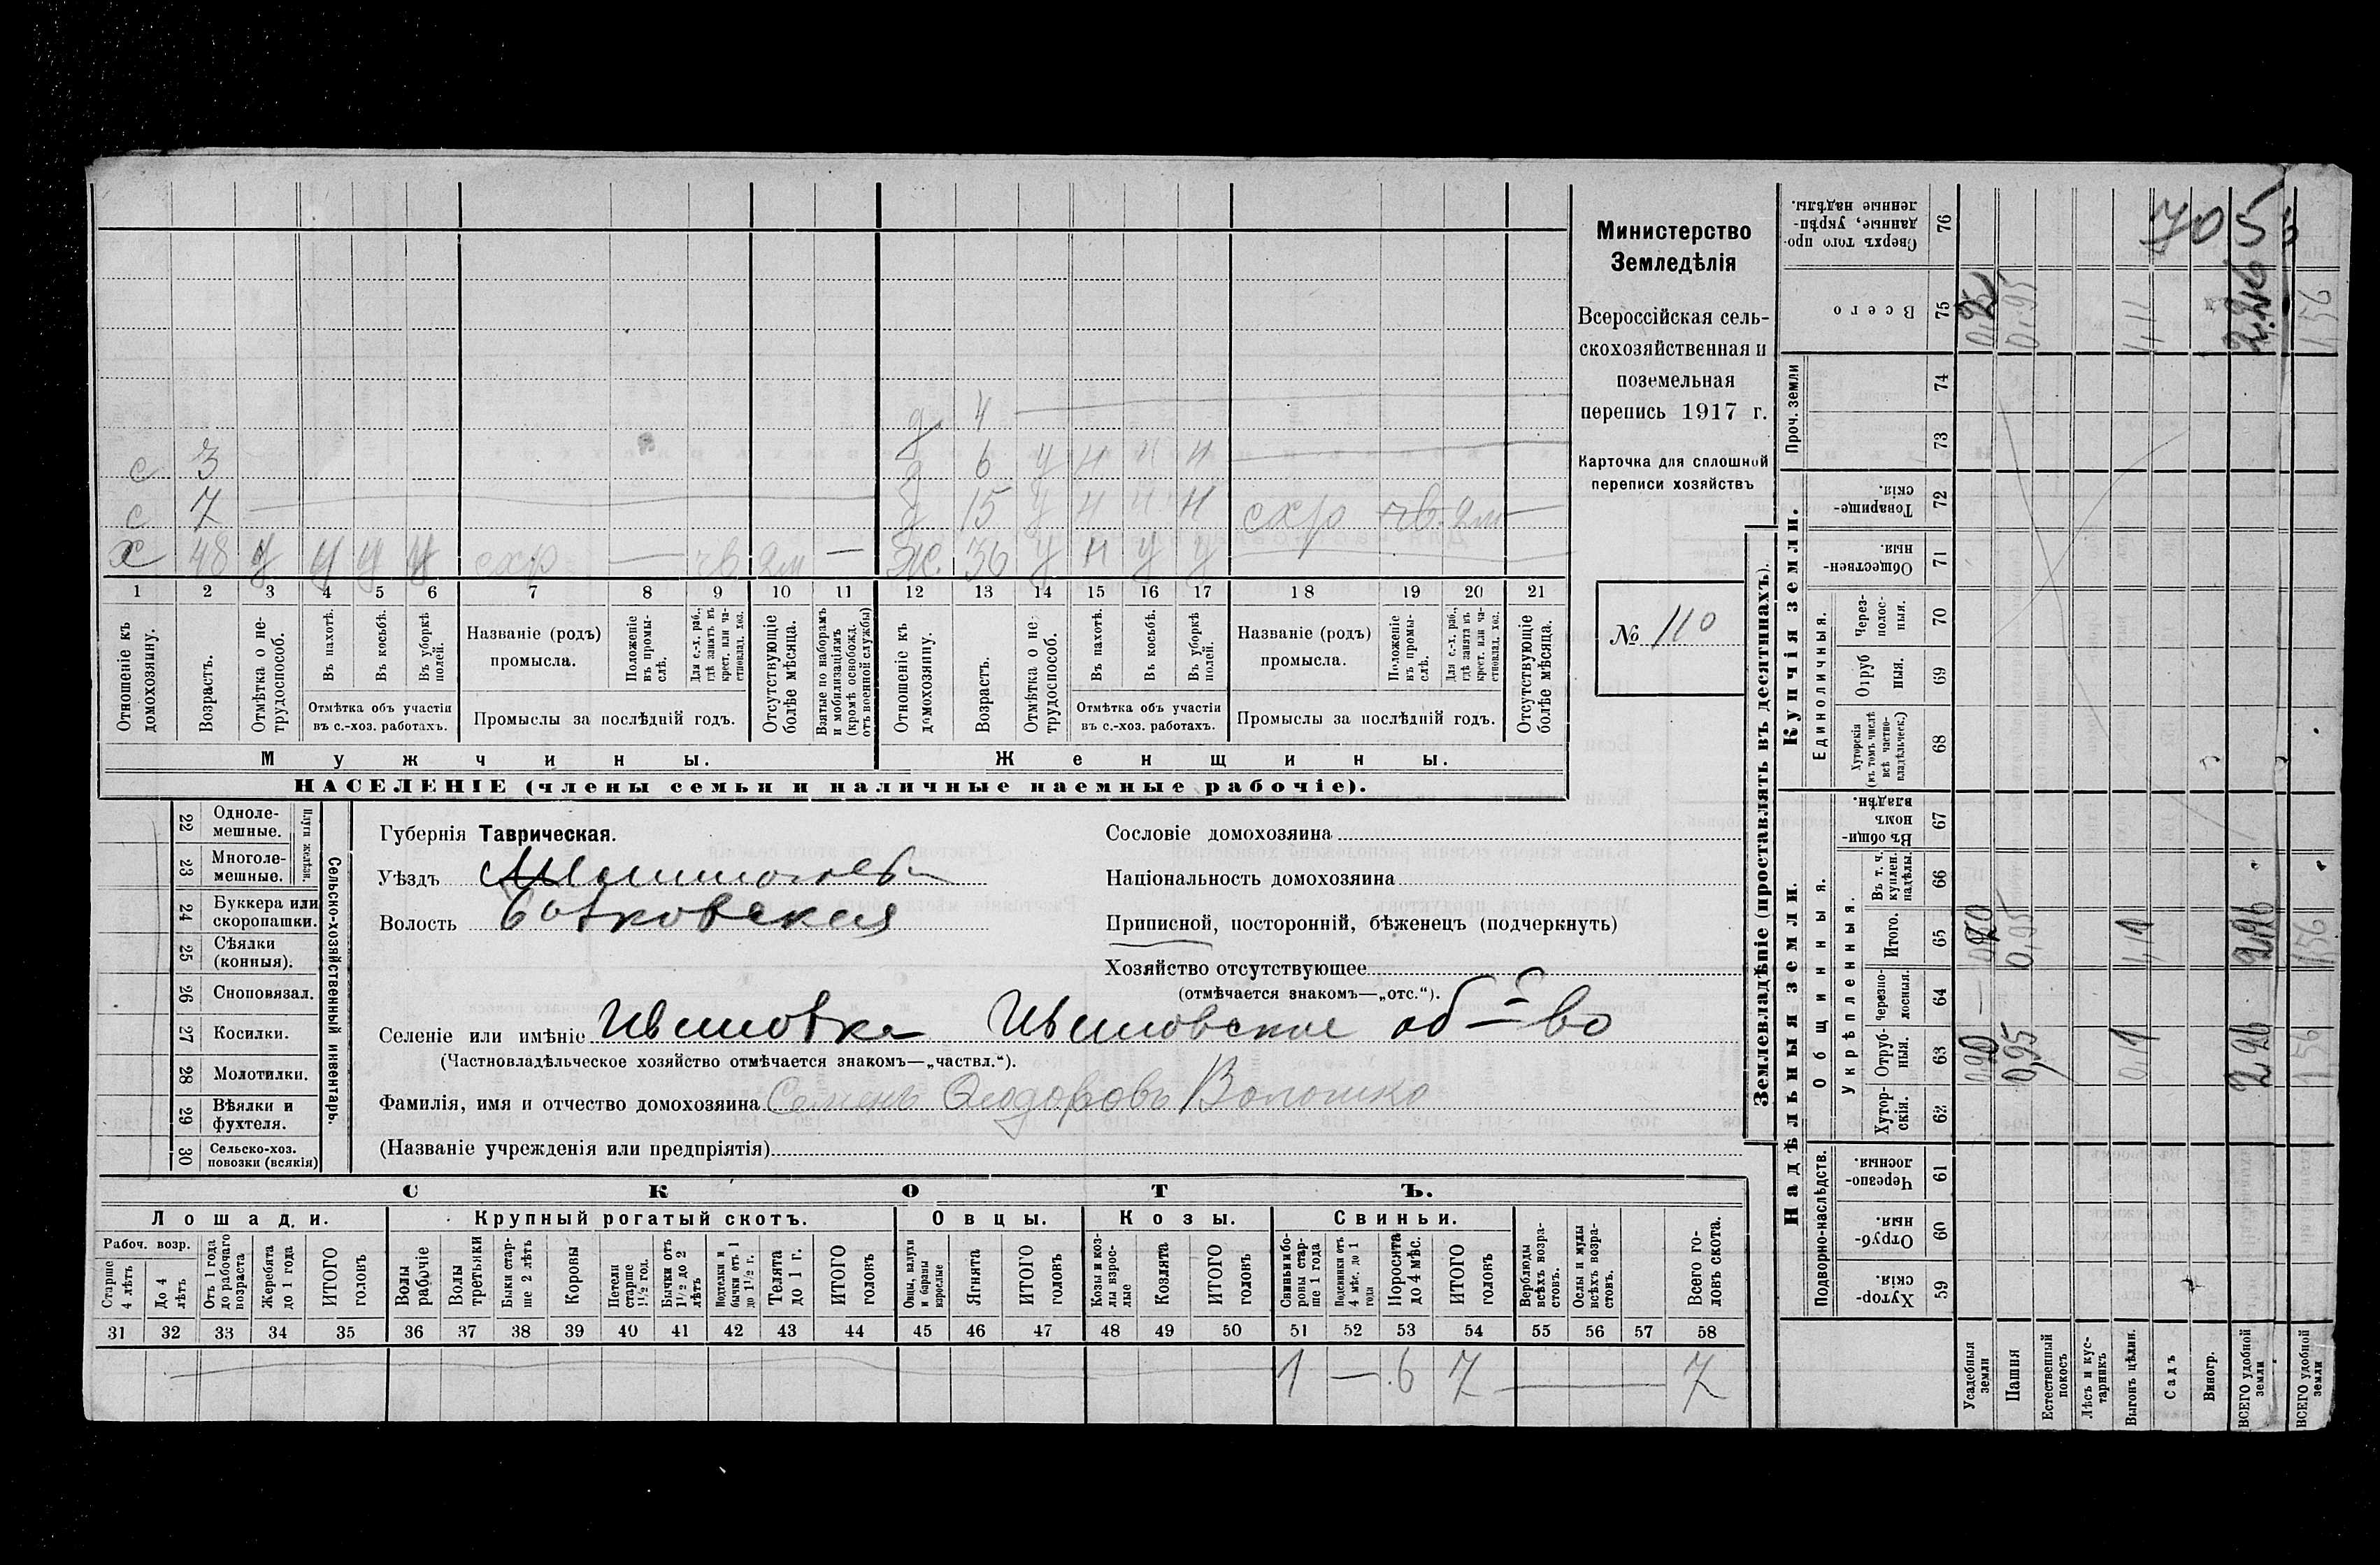 Министерство
Земледѣлія
Всероссійская сель-
скохозяйственная и
поземельная
перепись 1917 г.
Карточка для сплошной
переписи хозяйствъ
№ 110
д 4
с 3 д 6 у н н н
с 7 д 15 у н н н схр — чв. 2м —
х 48 у у у у схр — чв 2м — ж. 36 у н у у
1 2 3 4 5 6 7 8 9 10 11 12 13 14 15 16 17 18 19 20 21
Отношеніе къ домохозяину.
Возрастъ.
Отмѣтка о не-трудоспособ.
Въ пахотѣ.
Въ косьбѣ.
Въ уборкѣ полей.
Отмѣтка объ участіи
въ с.-хоз. работахъ.
Названіе (родъ)
промысла.
Положеніе въ промы-слѣ.
Для с.-х. раб., гдѣ занятъ въ крест. или ча-стновлад. хоз.
Промыслы за послѣдній годъ.
Отсутствующіе болѣе мѣсяца.
Взятые по наборамъ и мобилизаціямъ (кромѣ освобожд. отъ военной службы)
Отношеніе къ домохозяину.
Возрастъ.
Отмѣтка о не-трудоспособ.
Въ пахотѣ.
Въ косьбѣ.
Въ уборкѣ полей.
Отмѣтка объ участіи
въ с.-хоз. работахъ.
Названіе (родъ)
промысла.
Положеніе въ промы-слѣ.
Для с.-х. раб., гдѣ занята въ крест. или ча-стновлад. хоз.
Промыслы за послѣдній годъ.
Отсутствующіе болѣе мѣсяца.
Мужчины. Женщины.
НАСЕЛЕНІЕ (члены семьи и наличные наемные рабочіе).
22 Одноле-мешные.
23 Многоле-мешные.
Плуги желѣзн.
24 Буккера или скоропашки.
25 Сѣялки (конныя).
26 Сноповязал.
27 Косилки.
28 Молотилки.
29 Вѣялки и фухтеля.
30 Сельско-хоз. повозки (всякія)
Сельско-хозяйственный инвентарь.
Губернія Таврическая.
Уѣздъ
Волость
Сословіе домохозяина
Національность домохозяина
Приписной, посторонній, бѣженецъ (подчеркнуть)
Хозяйство отсутствующее
(отмѣчается знакомъ—„отс.“).
Селеніе или имѣніе Ивановка Ивановское об-во
(Частновладѣльческое хозяйство отмѣчается знакомъ—„частвл.“).
Фамилія, имя и отчество домохозяина Семенъ Ѳеодоровъ Волошко
(Названіе учрежденія или предпріятія)
СКОТЪ.
Лошади. Крупный рогатый скотъ. Овцы. Козы. Свиньи.
Рабоч. возр.
Старше 4 лѣтъ
До 4 лѣтъ
Отъ 1 года до рабочаго возраста
Жеребята до 1 года
ИТОГО головъ
Волы рабочіе
Волы третьяки
Быки стар-ше 2 лѣтъ
Коровы
Нетели старше 1½ год.
Бычки отъ 1½ до 2 лѣтъ
Подтелки и бычки отъ 1 до 1½ г.
Телята до 1 г.
ИТОГО головъ
Овцы, валухи и бараны взрослые
Ягнята
ИТОГО головъ
Козы и коз-лы взрос-лые
Козлята
ИТОГО головъ
Свиньи и бо-ровы стар-ше 1 года
Подсвинки отъ 4 мѣс. до 1 года
Поросята до 4 мѣс.
ИТОГО головъ
Верблюды всѣхъ возра-стовъ.
Ослы и мулы всѣхъ возра-стовъ.
Всего го-ловъ скота.
31 32 33 34 35 36 37 38 39 40 41 42 43 44 45 46 47 48 49 50 51 52 53 54 55 56 57 58
1 — 6 7 — 7
Землевладѣніе (проставлять въ десятинахъ).
Купчія земли.
Надѣльныя земли.
Сверхъ того про-данные, укрѣп-ленные надѣлы. 76
Всего 75
Проч. земли 74 73
Товарище-скія. 72
Обществен-ныя. 71
Единоличныя.
Через-полос-ныя. 70
Отруб ныя. 69
Хуторскія (въ томъ числѣ всѣ частно-владѣльческ.) 68
Общинныя.
Въ общи-номъ владѣн. 67
Укрѣпленныя.
Въ т. ч. куплен. надѣлы. 66
Итого. 65
Черезпо-лосныя. 64
Отруб-ныя. 63
Хутор-скія. 62
Подворно-наслѣдств.
Черезпо-лосныя. 61
Отруб-ныя. 60
Хутор-скія. 59
Усадебныя земли
Пашня 0,95 0,95 0,95
Естественный покосъ
Лѣсъ и кус-тарникъ
Выгонъ цѣлин.
Садъ
Виногр.
ВСЕГО удобной земли
ВСЕГО удобной земли